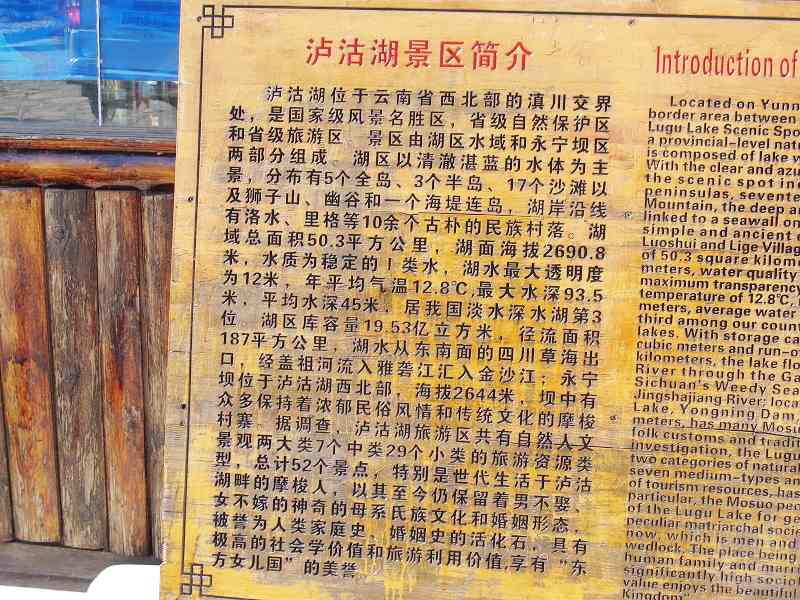 泸沽湖景区简介
泸沽湖位于云南省西北部的滇川交界
处，是国家级风景名胜区，省级自然保护区
和省级旅游区 景区由湖区水域和永宁坝区
两部分组成。湖区以清澈湛蓝的水体为主
景，分布有5个全岛、3个半岛、17个沙滩以
及狮子山、幽谷和一个海堤连岛，湖岸沿线
有洛水、里格等10余个古朴的民族村落。湖
域总面积50.3平方公里，湖面海拔2690.8
米，水质为稳定的Ⅰ类水，湖水最大透明度
为12米，年平均气温12.8℃,最大水深93.5
米，平均水深45米，居我国淡水深水湖第3
位 湖区库容量19.53亿立方米，径流面积
187平方公里，湖水从东南面的四川草海出
口，经盖祖河流入雅砻江汇入金沙江；永宁
坝位于泸沽湖西北部，海拔2644米，坝中有
众多保持着浓郁民俗风情和传统文化的摩梭
村寨。据调查，泸沽湖旅游区共有自然人文
景观两大类7个中类29个小类的旅游资源类
型，总计52个景点，特别是世代生活于泸沽
湖畔的摩梭人，以其至今仍保留着男不娶、
女不嫁的神奇的母系民族文化和婚姻形态，
被誉为人类家庭史、婚姻史的活化石，具有
极高的社会学价值和旅游利用价值,享有“东
方女儿国”的美誉
Introduction of
Located on Yunn
border area between
Lugu Lake Scenic Spo
a provincial-level natu
is composed of lake w
With the clear and azu
the scenic spot in
peninsulas, sevente
Mountain, the deep a
linked to a seawall on
simple and ancient e
Luoshui and Lige Villag
of 50.3 square kilom
meters, water quality
maximum transparency
temperature of 12.8℃,
meters, average water
third among our coun
lakes. With storage ca
cubic meters and run-o
kilometers, the lake flo
River through the Ga
Sichuan's Weedy Sea
Jingshajiang River; loca
Lake, Yongning Dam,
meters, has many Mosu
folk customs and traditi
investigation, the Lugu
two categories of natural
seven medium-types an
of tourism resources, has
particular, the Mosuo peo
of the Lugu Lake for ge
peculiar matriarchal socie
now, which is men and
wedlock. The place being
human family and marr
significantly high sociol
value enjoys the beautiful
Kingdom"